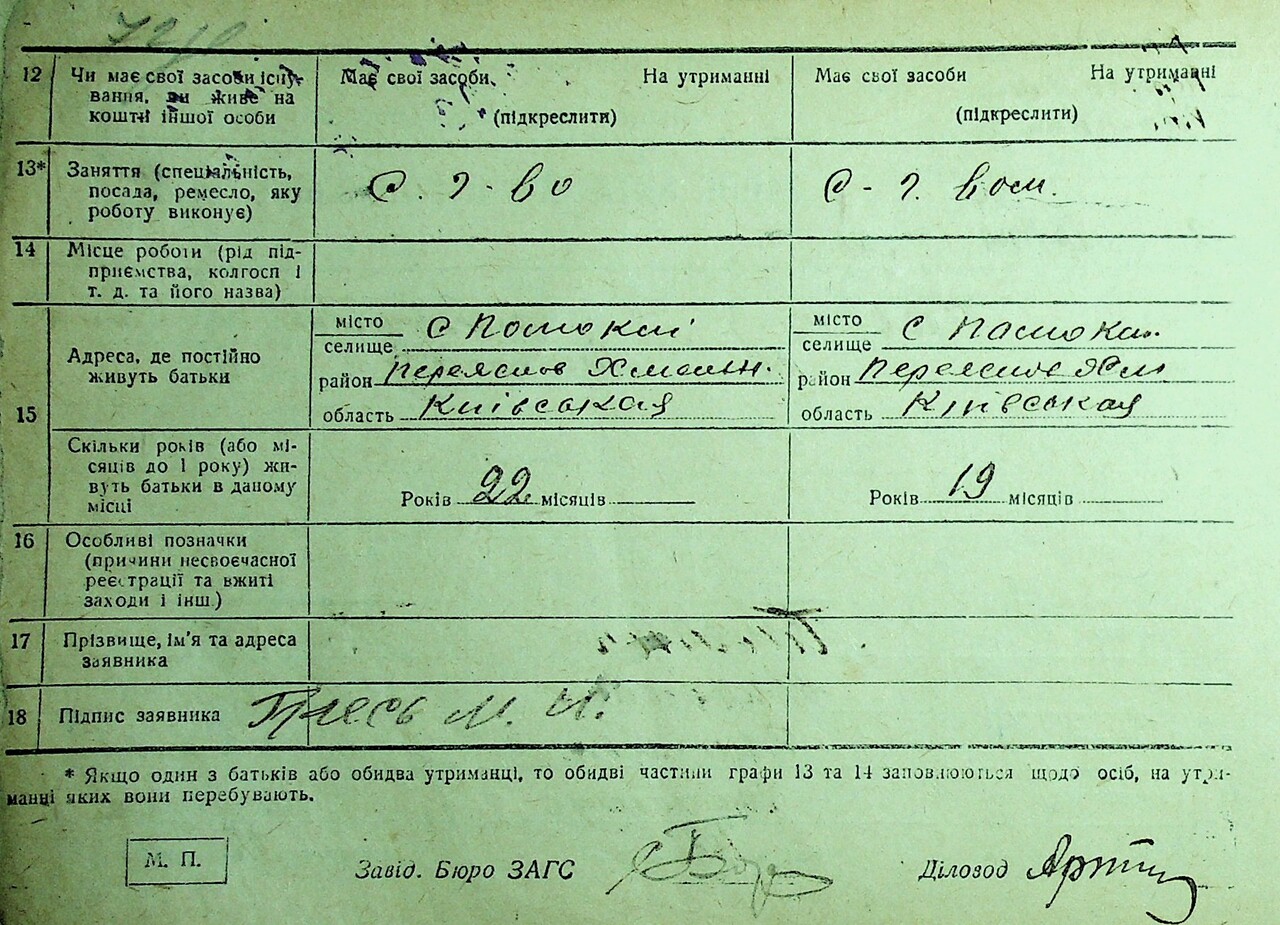 12 Чи має свої засоби існу- Має свої засоби. На утриманні Має свої засоби На утриманні
вання, чи живе на
кошті іншої особи (підкреслити) (підкреслити)
13* Заняття (спеціальність,
посада, ремесло, яку С. г-во С-г.
роботу виконує)
14 Місце роботи (рід під-
приємства, колгосп і
т. д. та його назва)
15 Адреса, де постійно
живуть батьки
місто
селище с
район Переяслов
область Київськая
місто
селище с
район Переяслов
область Київськая
Скільки років (або мі-
сяців до 1 року) жи-
вуть батьки в даному
місці
Років 22 місяців Років 19 місяців
16 Особливі позначки
(причини несвоєчасної
реєстрації та вжиті
заходи і інш.)
17 Прізвище, ім'я та адреса
заявника
18 Підпис заявника М. И.
* Якщо один з батьків або обидва утриманці, то обидві частини графи 13 та 14 заповнюються щодо осіб, на утри-
манні яких вони перебувають.
М. П. Завід. Бюро ЗАГС Діловод